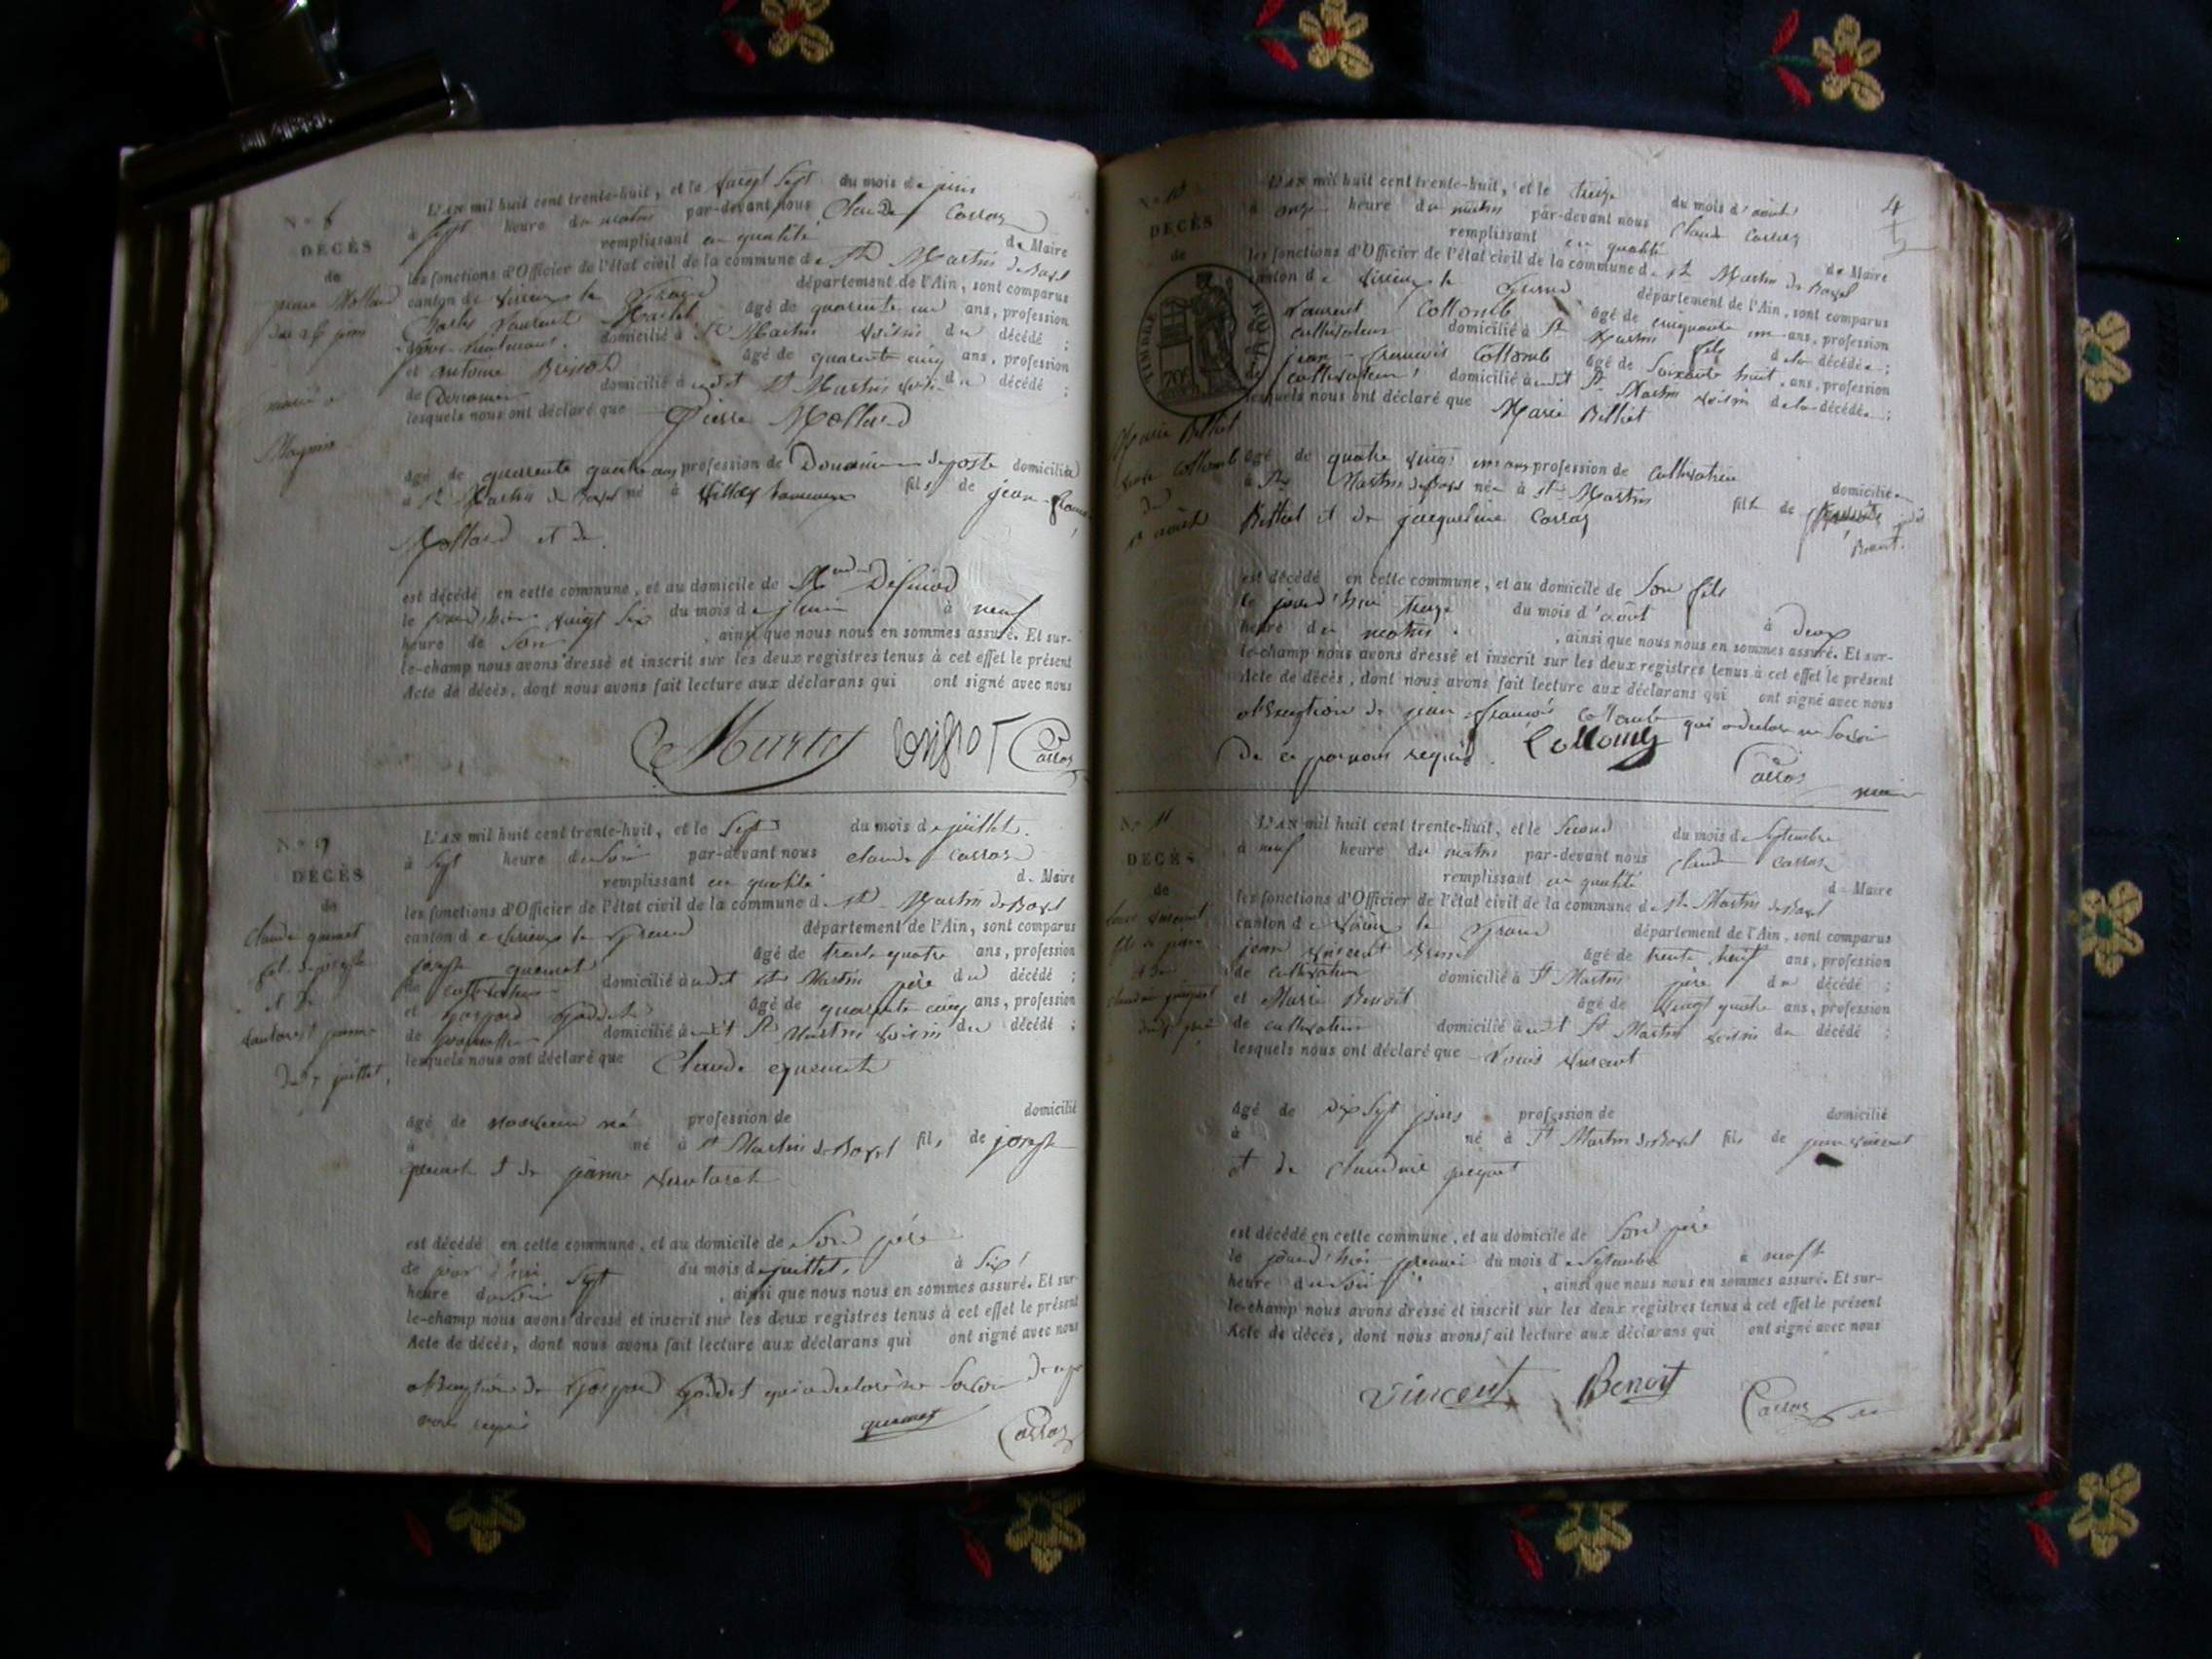 N.° 8
DÉCÈS
de
pierre Mollard
du 26 juin
marié a
L'AN mil huit cent trente-huit, et le vingt sept du mois de juin
à sept heure du matin par-devant nous Claude Carraz
remplissant en qualité de Maire
les fonctions d'Officier de l'état civil de la commune de St Martin de Bavel
canton de Virieux le Grand département de l'Ain, sont comparus
Charles Laurent Martel âgé de quarente un ans, profession
domicilié à St Martin voisin du décédé ;
et antoine Brissot âgé de quarente cinq ans, profession
de Douanier domicilié audit St Martin voisin du décédé ;
lesquels nous ont déclaré que Pierre Mollard
âgé de quarente quatre ans profession de Douanier domicilié
à St Martin de Bavel né à fils de jean-
Mollard et de
est décédé en cette commune, et au domicile de
le jourd'hier vingt six du mois de juin à neuf
heure de soir, ainsi que nous nous en sommes assuré. Et sur-
le-champ nous avons dressé et inscrit sur les deux registres tenus à cet effet le présent
Acte de décès, dont nous avons fait lecture aux déclarans qui ont signé avec nous
Martel Brissot Carraz
N.° 9
DÉCÈS
de
Claude quenet
fils de joseph
et de
du 7 juillet
L'AN mil huit cent trente-huit, et le Sept du mois de juillet.
à sept heure du soir par-devant nous claude Carraz
remplissant en qualité de Maire
les fonctions d'Officier de l'état civil de la commune de St Martin de Bavel
canton de Virieux le Grand département de l'Ain, sont comparus
joseph âgé de trente quatre ans, profession
de cultivateur domicilié audit St Martin père du décédé ;
et Gaspard Goddet âgé de quarente cinq ans, profession
de domicilié audit St Martin voisin du décédé ;
lesquels nous ont déclaré que Claude
âgé de nouveau né profession de domicilié
à né à St Martin de Bavel fils de joseph
et de jeanne
est décédé en cette commune, et au domicile de Son père
le jour d'hui sept du mois de juillet, à Six
heure du soir, ainsi que nous nous en sommes assuré. Et sur-
le-champ nous avons dressé et inscrit sur les deux registres tenus à cet effet le présent
Acte de décès, dont nous avons fait lecture aux déclarans qui ont signé avec nous
a l'exception de Gaspard Goddet qui a déclaré ne savoir de ce par
nous requis
Carraz
4
N.° 10
DÉCÈS
de
TIMBRE ROYAL
Marie Belliet
veuve Collomb
du
août
L'AN mil huit cent trente-huit, et le treize du mois d'août
à onze heure du matin par-devant nous Claude Carraz
remplissant en qualité de Maire
les fonctions d'Officier de l'état civil de la commune de St Martin de Bavel
canton de Virieux le Grand département de l'Ain, sont comparus
Laurent Collomb âgé de cinquante un ans, profession
cultivateur domicilié à St Martin fils de la décédée ;
jean-françois Collomb âgé de Soixante huit, ans, profession
cultivateur domicilié audit St Martin voisin de la décédée ;
lesquels nous ont déclaré que Marie Belliet
âgé de quatre vingt un ans profession de Cultivatrice domiciliée
à St Martin de Bavel née à St Martin fille de
Belliet et de jacqueline Carraz
est décédé en cette commune, et au domicile de Son fils
le jourd'hui treize du mois d'août à deux
heure du matin, ainsi que nous nous en sommes assuré. Et sur-
le-champ nous avons dressé et inscrit sur les deux registres tenus à cet effet le présent
Acte de décès, dont nous avons fait lecture aux déclarans qui ont signé avec nous
a l'exception de jean françois Collomb qui a déclaré ne savoir
de ce par nous requis. Collomb Carraz
N.° 11
DÉCÈS
de
Louis vincent
fils de jean
et de
claudine
L'AN mil huit cent trente-huit, et le Second du mois de Septembre
à neuf heure du matin par-devant nous Claude Carraz
remplissant en qualité de Maire
les fonctions d'Officier de l'état civil de la commune de St Martin de Bavel
canton de Virieux le Grand département de l'Ain, sont comparus
jean vincent âgé de trente huit ans, profession
de cultivateur domicilié à St Martin père du décédé ;
et Marie Benoit âgé de vingt quatre ans, profession
de cultivateur domicilié audit St Martin voisin du décédé ;
lesquels nous ont déclaré que Louis vincent
âgé de dix sept jours profession de domicilié
à né à St Martin de Bavel fils de jean vincent
et de Claudine
est décédé en cette commune, et au domicile de Son père
le jourd'hier premier du mois de Septembre à neuf
heure du soir, ainsi que nous nous en sommes assuré. Et sur-
le-champ nous avons dressé et inscrit sur les deux registres tenus à cet effet le présent
Acte de décès, dont nous avons fait lecture aux déclarans qui ont signé avec nous
Vincent Benoit Carraz